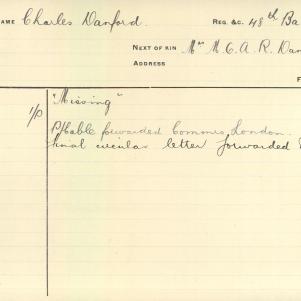 NAME Charles Danford. REG. &C. 48th Ba
NEXT OF KIN Mrs M C. A. R. Dan
ADDRESS
F
"Missing"
1/P P/Cable forwarded Commns London.
final circular letter forwarded